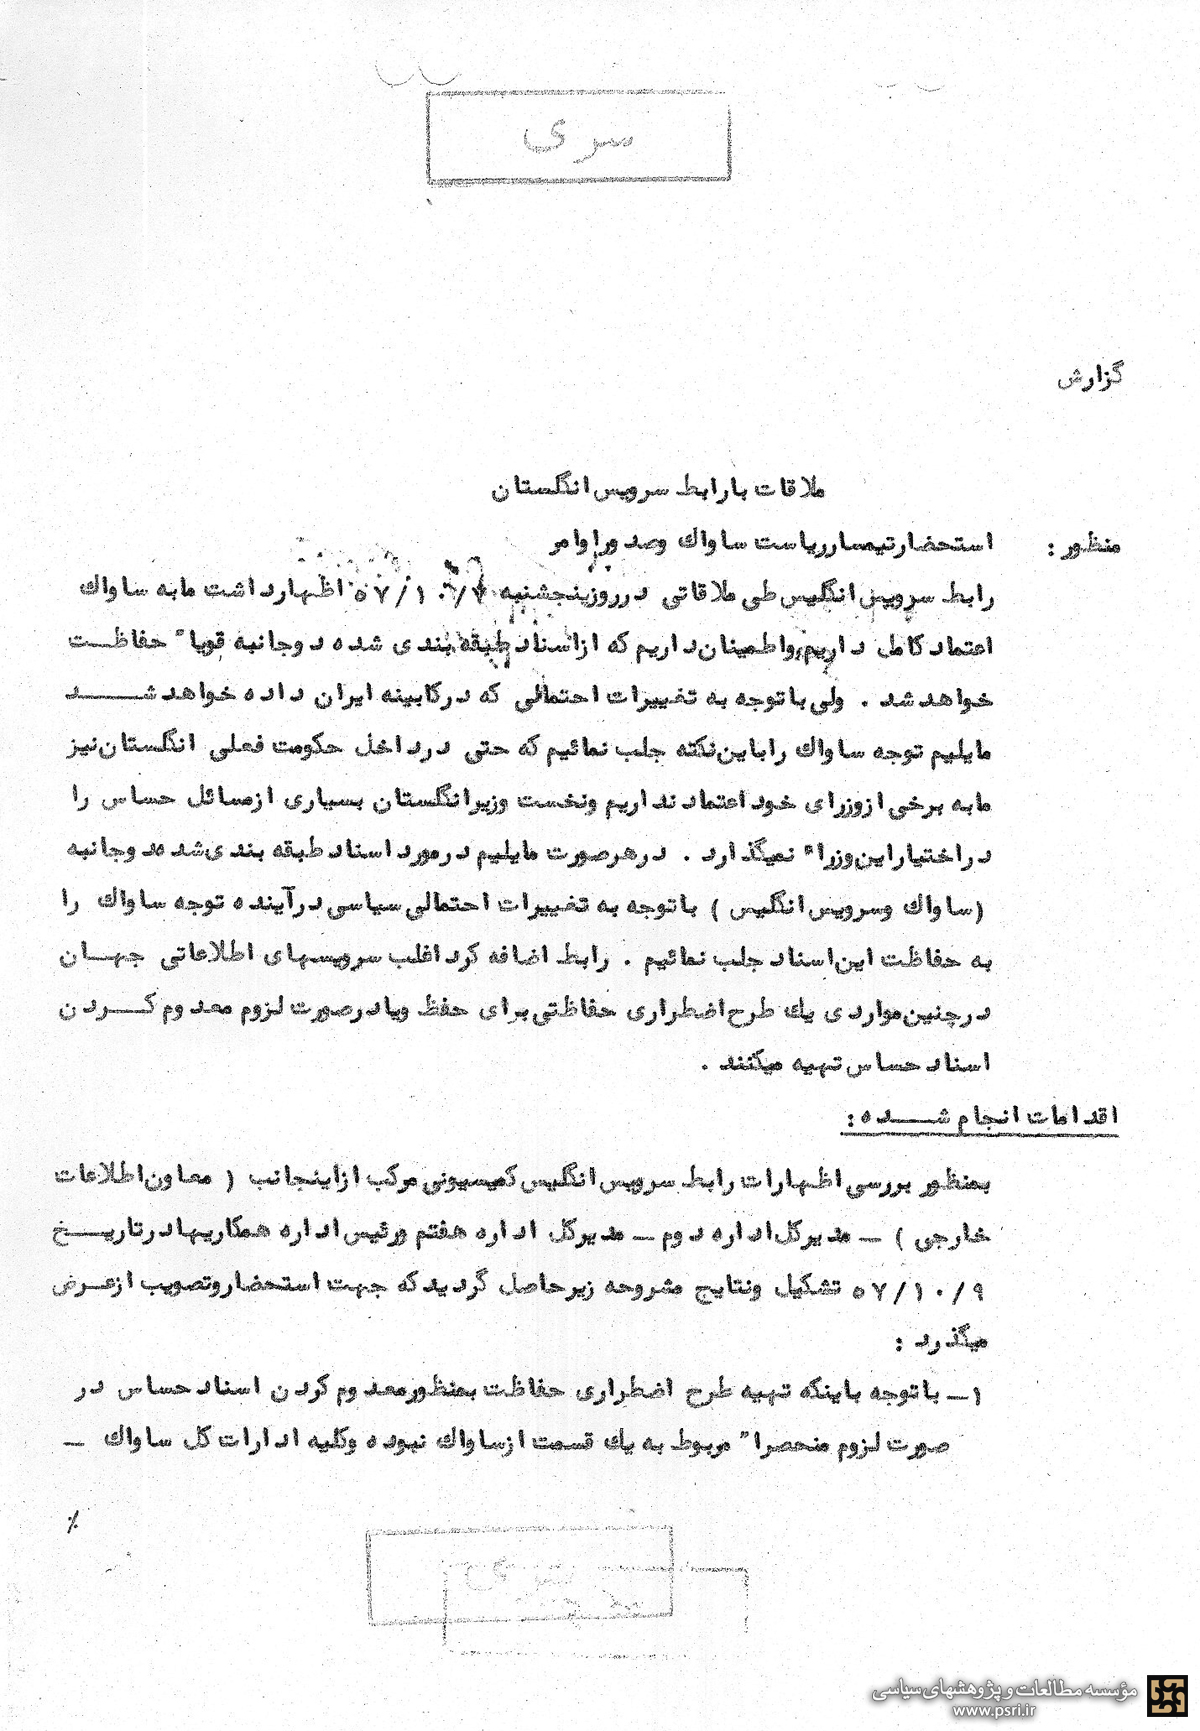 سری
گزارش
ملاقات با رابط سرویس انگلستان
منظور : استحضار تیمسار ریاست ساواك وصدور اوامر
رابط سرویس انگلیس طی ملاقاتی در روز پنجشنبه ۵۷/۱۰/۷ اظهار داشت ما به ساواك
اعتماد کامل داریم و اطمینان داریم که از اسناد طبقه بندی شده دوجانبه قویا" حفاظت
خواهد شد . ولی با توجه به تغییرات احتمالی که در کابینه ایران داده خواهد شد
مایلیم توجه ساواك را باین نکته جلب نمائیم که حتی در داخل حکومت فعلی انگلستان نیز
ما به برخی از وزرای خود اعتماد نداریم ونخست وزیر انگلستان بسیاری از مسائل حساس را
در اختیار این وزراء نمیگذارد . در هر صورت مایلیم در مورد اسناد طبقه بندی شده دوجانبه
(ساواك وسرویس انگلیس ) با توجه به تغییرات احتمالی سیاسی در آینده توجه ساواك را
به حفاظت این اسناد جلب نمائیم . رابط اضافه کرد اغلب سرویسهای اطلاعاتی جهان
در چنین مواردی یك طرح اضطراری حفاظتی برای حفظ ویا در صورت لزوم معدوم کردن
اسناد حساس تهیه میکنند .
اقدامات انجام شده :
بمنظور بررسی اظهارات رابط سرویس انگلیس کمیسیونی مرکب از اینجانب ( معاون اطلاعات
خارجی ) – مدیرکل اداره دوم – مدیرکل اداره هفتم ورئیس اداره همکاریها در تاریخ
۵۷/۱۰/۹ تشکیل ونتایج مشروحه زیر حاصل گردید که جهت استحضار وتصویب از عرض
میگذرد :
۱– با توجه باینکه تهیه طرح اضطراری حفاظت بمنظور معدوم کردن اسناد حساس در
صورت لزوم منحصرا" مربوط به یك قسمت از ساواك نبوده وکلیه ادارات کل ساواك –
٪
سری
مؤسسه مطالعات و پژوهشهای سیاسی
www.psri.ir